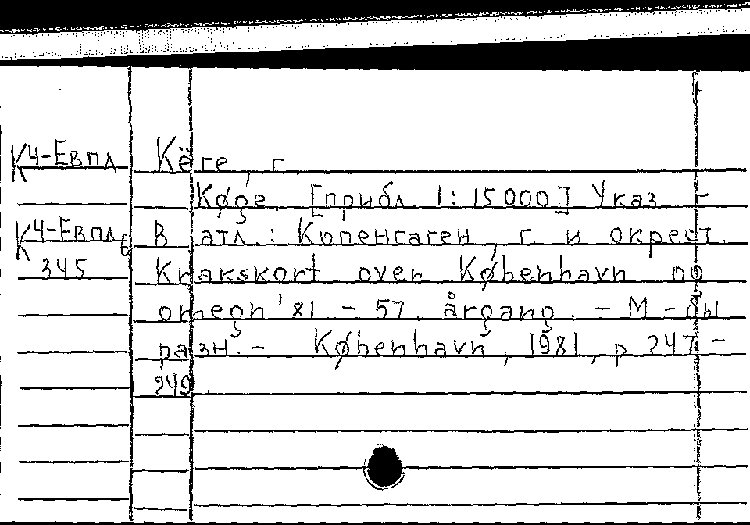 К4-Евпд Кёге, г.
Køge. [прибл. 1:15000] Указ. -
К4-Евпд6 В атл.: Копенгаген, г. и окрест.
345 Krakskort over København og
omegn '81. - 57. årgang. - М-бы
разн. - København, 1981, p. 247-
249